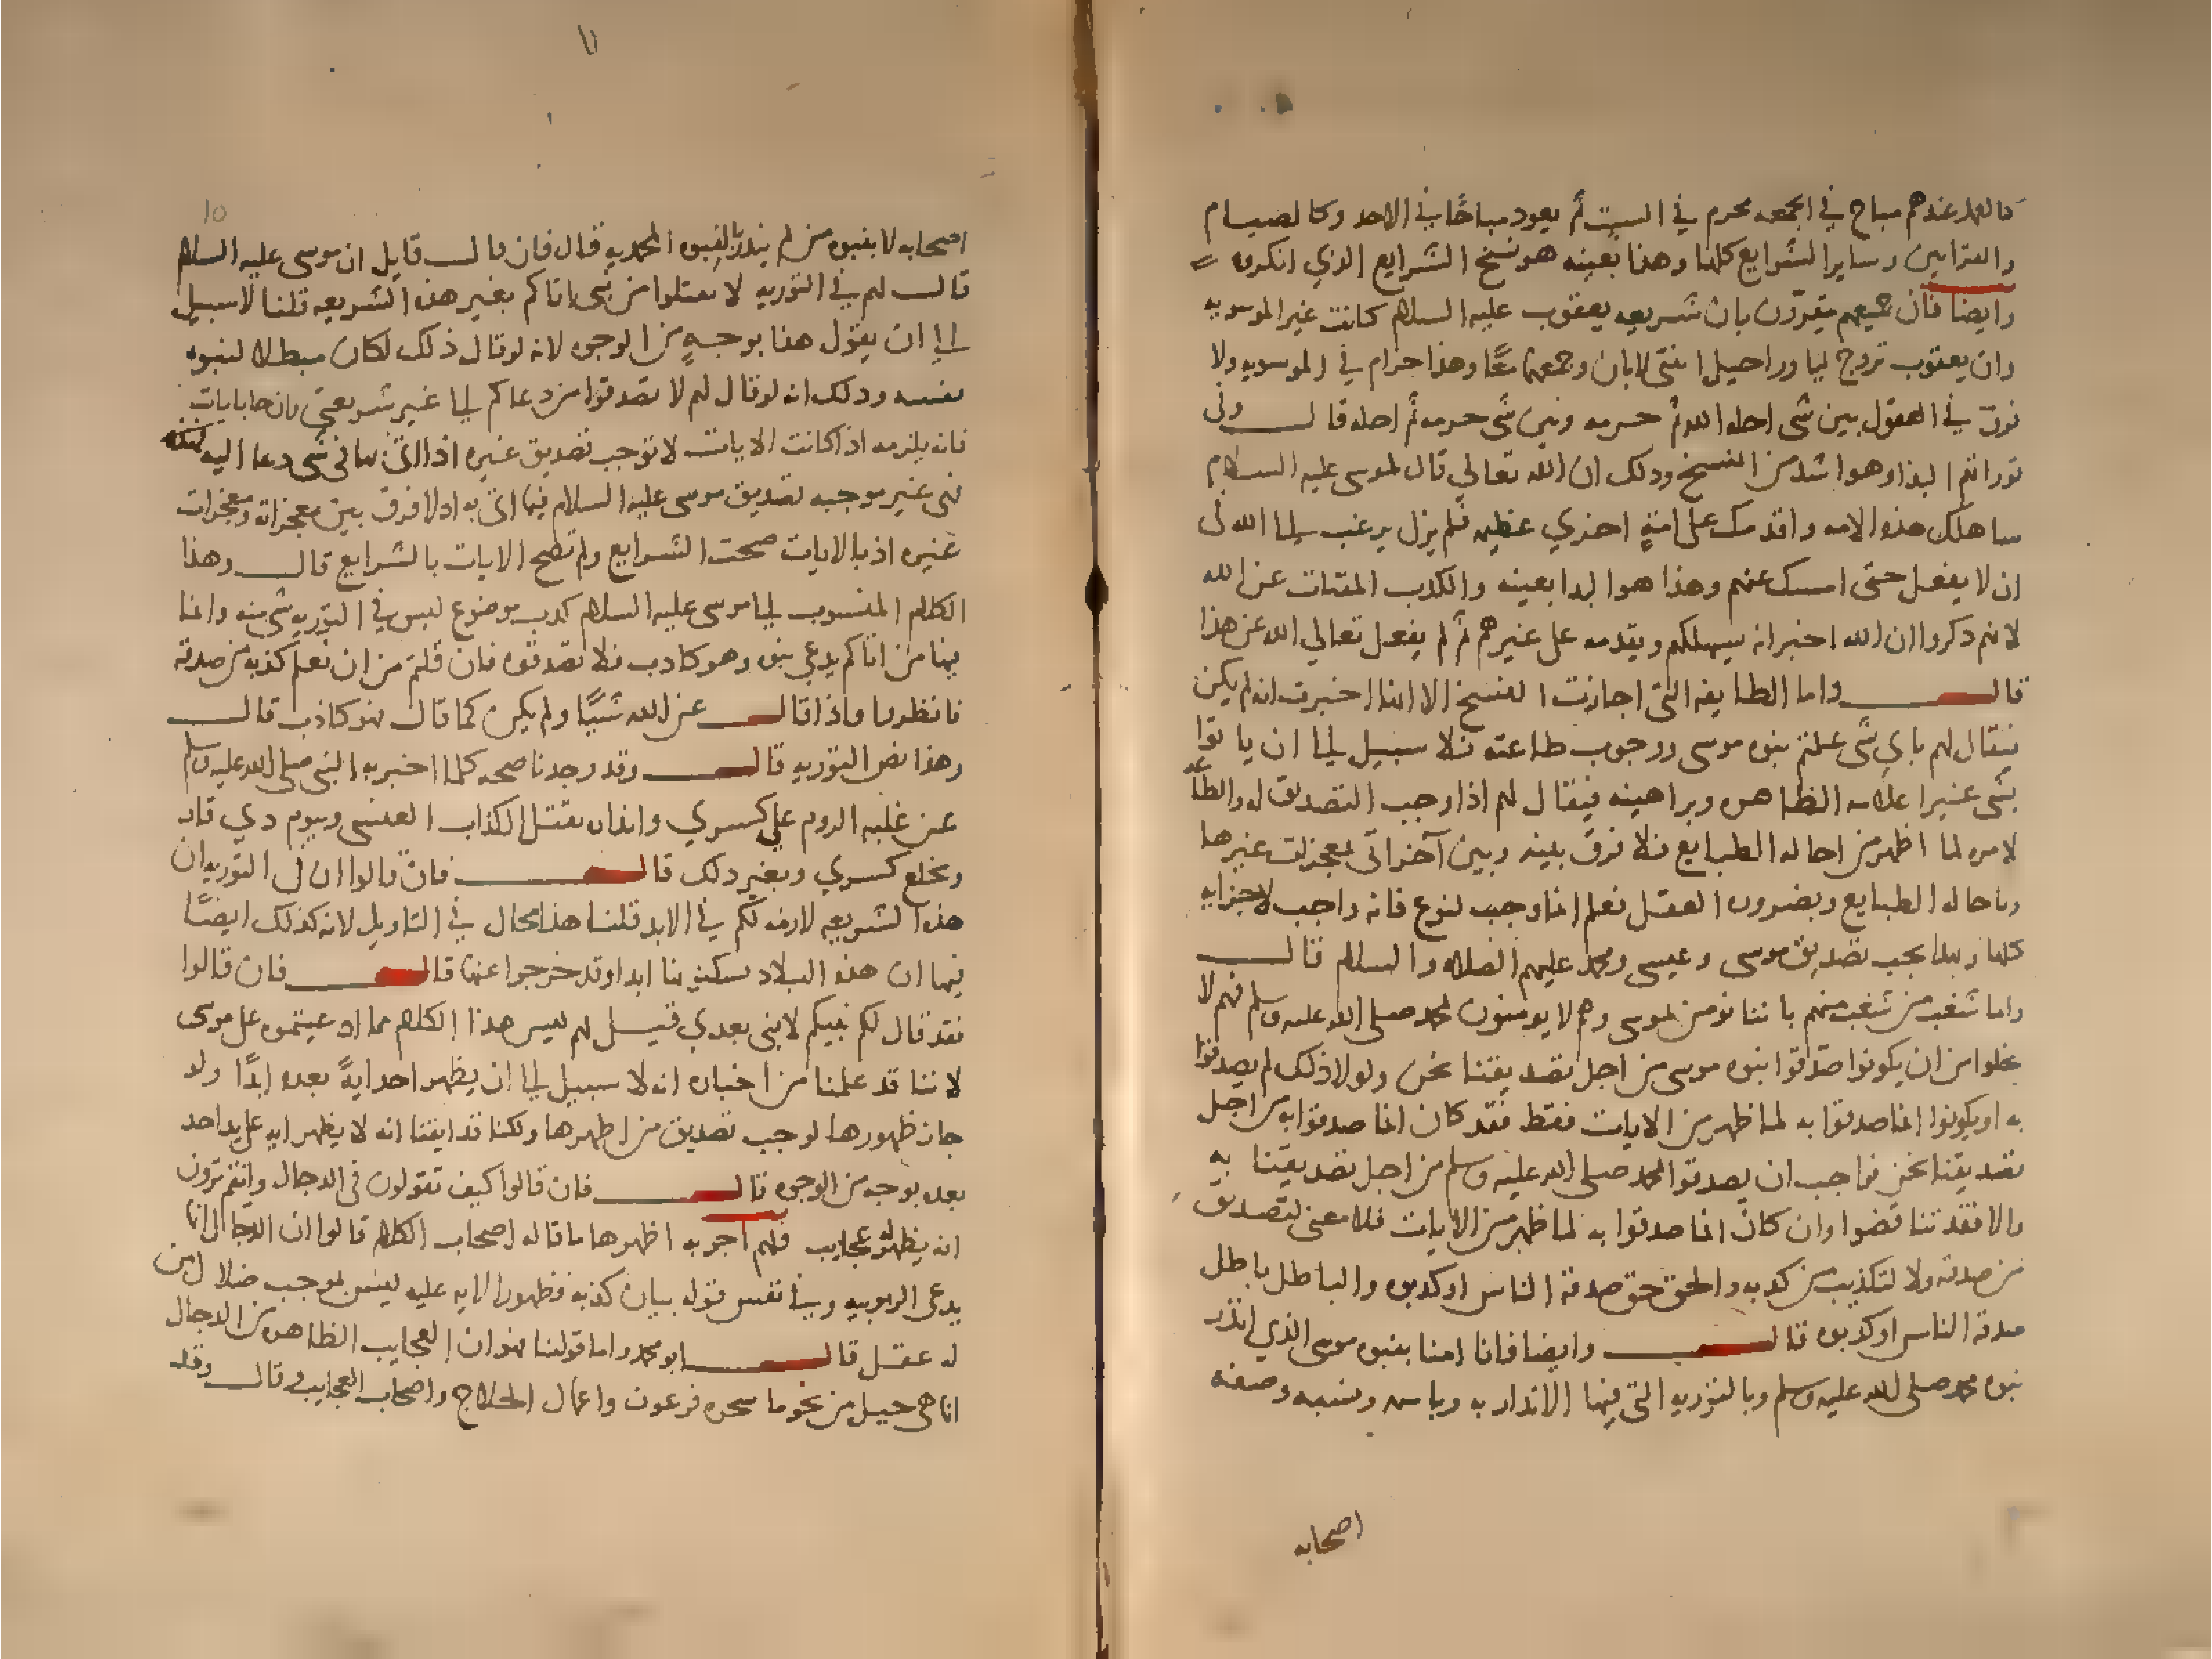 كالعمل عندهم مباح في الجمعه محرم في السبت ثم يعود مباحًا في الاحد وكالصيام
والقرابين وساير الشرايع كلها وهذا بعينه هو نسخ الشرايع الذي انكروه
وايضا فان جميعهم يقرون بان شريعه يعقوب عليه السلام كانت غير الموسويه
وان يعقوب تزوج ليا وراحيل ابنتي لابان وجمعهما معًا وهذا حرام في الموسويه ولا
فرق في العقول بين شي احله الله ثم حرمه وبين شي حرمه ثم احله قال وفي
توراتهم البدا وهو اشد من النسخ وذلك ان الله تعالي قال لموسي عليه السلام
ساهلك هذه الامه واقدمك علي امةٍ اخري عظيمه فلم يزل يرغب الي الله في
ان لا يفعل حتى امسك عنهم وهذا هو البدا بعينه والكذب عن الله
لانهم ذكروا ان الله اخبر انه سيهلكهم ويقدمه علي غيرهم ثم لم يفعل تعالي الله عن هذا
قال واما الطايفه التي اجازت النسخ الا انها اخبرت انه لم يكن
فيقال لهم باي شي علمتم نبوه موسى ووجوب طاعته فلا سبيل الي ان ياتوا
بشي غير اعلامه الظاهره وبراهينه فيقال لهم اذا وجب التصديق له والطاعه
لامره لما اظهر من احاله الطبايع فلا فرق بينه وبين آخر اتي بمعجزات غيرها
وباحاله الطبايع وبضروره العقل نعلم انما وجب لنوع فانه واجب لاجزايه
كلها وبهذا يجب تصديق موسى وعيسى ومحمد عليهم الصلاه والسلام قال
واما شغب من شغب منهم باننا نومن بموسى وهم لا يومنون بمحمد صلى الله عليه وسلم فهم لا
يخلوا من ان يكونوا صدّقوا بنبوه موسى من اجل تصديقنا نحن ولولا ذلك لم يصدقوا
به او يكونوا انما صدقوا به لما ظهر من الايات فقط فقد كان انما صدقوا به من اجل
تصديقنا نحن فواجب ان يصدقوا بمحمد صلى الله عليه وسلم من اجل تصديقنا به
والا فقد تناقضوا وان كان انما صدقوا به لما ظهر من الايات فلا معنى لتصديق
من صدقه ولا لتكذيب من كذبه والحق حق صدقه الناس او كذبوه والباطل باطل
صدقه الناس او كذبوه قال وايضا فانا امنا بنبوه موسى الذي انذر
بنبوه محمد صلى الله عليه وسلم وبالتوريه التي فيها الانذار به وباسمه ونسبه وصفه
اصحابه
١١
١٥
اصحابه لا بنبوه من لم ينذر بالنبوه المحمديه قال فان قال قايل ان موسى عليه السلام
قال لهم في التوريه لا تقبلوا من نبي اتاكم بغير هذه الشريعه قلنا لا سبيل
الي ان يقول هذا بوجهٍ من الوجوه لانه لو قال ذلك لكان مبطلا لنبوه
نفسه وذلك انه لو قال لهم لا تصدقوا من دعاكم الي غير شريعتي وان جا بايات
فانه يلزمه اذا كانت الايات لا توجب تصديق غيره اذا اتى بها في شي دعا اليه
فهي غير موجبه تصديق موسى عليه السلام فيما اتى به اذ لا فرق بين معجزاته ومعجزات
غيره اذ بالايات صحت الشرايع ولم تصح الايات بالشرايع قال وهذا
الكلام المنسوب الي موسى عليه السلام كذب موضوع ليس في التوريه شي منه وانما
فيها من اتاكم يدعي نبوه وهو كاذب فلا تصدقوه فان قلتم من ان نعلم كذبه من صدقه
فانظروا فاذا قال عن الله شييًا ولم يكن كما قال فهو كاذب قال
وهذا نص التوريه قال وقد وجدنا صحه كلما اخبر به النبي صلى الله عليه وسلم
عن غلبه الروم علي كسري وانذاره بقتل الكذاب العنسي وبيوم ذي قار
وبخلع كسري وبغير ذلك قال فان قالوا ان في التوريه ان
هذه الشريعه لازمه لكم في الابد قلنا هذا محال في التاويل لانه كذلك ايضًا
فيها ان هذه البلاد يسكنونها ابدا وقد خرجوا عنها قال فان قالوا
فقد قال لكم نبيكم لا نبي بعدي قيل لهم ليس هذا الكلام مما ادعيتموه علي موسى
لاننا قد علمنا من اخباره انه لا سبيل الي ان يظهر احد ايةً بعده ابدًا ولو
جاز ظهورها لوجب تصديق من اظهرها ولكنا قد ايقنا انه لا يظهر ايه علي يد احد
بعده بوجه من الوجوه قال فان قالوا كيف تقولون في الدجال وانتم ترون
انه يظهر له عجايب فلهم اجوبه اظهرها ما قاله اصحاب الكلام قالوا ان الدجال انما
يدعي الربوبيه وفي نفس قوله بيان كذبه فظهور الايه عليه ليس بموجب ضلال من
له عقل قال ابو محمد واما قولنا فهو ان العجايب الظاهره من الدجال
انما هي حيل من نحو ما سحره فرعون واعمال الحلاج واصحاب العجايب قال وقد